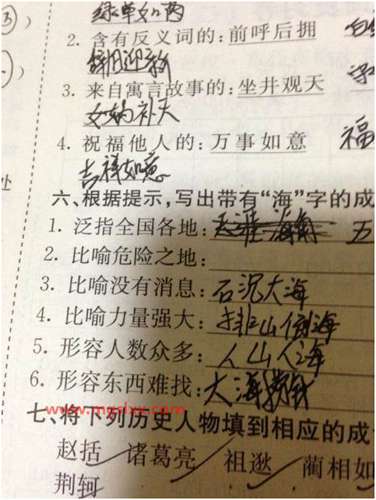 2. 含有反义词的: 前呼后拥
辞旧迎新
3. 来自寓言故事的: 坐井观天
女娲补天
4. 祝福他人的: 万事如意 福
吉祥如意
六、根据提示,写出带有“海”字的成
1. 泛指全国各地: 天涯海角 五
2. 比喻危险之地:
3. 比喻没有消息: 石沉大海
4. 比喻力量强大: 排山倒海
5. 形容人数众多: 人山人海
6. 形容东西难找: 大海捞针
七、将下列历史人物填到相应的成
赵括 诸葛亮 祖逖 蔺相如
荆轲